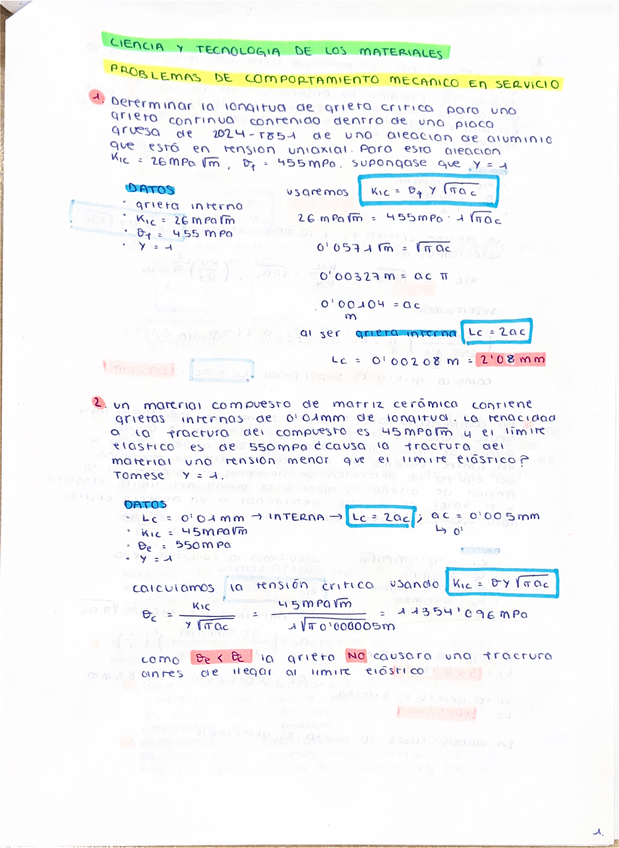 CIENCIA Y TECNOLOGIA DE LOS MATERIALES
PROBLEMAS DE COMPORTAMIENTO MECANICO EN SERVICIO
1. Determinar la longitud de grieta critica para una
grieta continua contenida dentro de una placa
gruesa de 2024-T851 de una aleacion de aluminio
que está en tension uniaxial. Para esta aleacion
KIC = 26MPa√m, σf = 455MPa. Supongase que Y = 1
DATOS
· grieta interna
· KIC = 26 MPa√m
· σf = 455 MPa
· Y = 1
usaremos KIC = σf Y √πac
26 MPa√m = 455MPa · 1 √πac
0'0571√m = √πac
0'00327m = ac π
0'00104 = ac
m
al ser grieta interna Lc = 2ac
Lc = 0'00208m = 2'08 mm
2. un material compuesto de matriz cerámica contiene
grietas internas de 0'01mm de longitud. La tenacidad
a la fractura del compuesto es 45MPa√m y el límite
elastico es de 550MPa ¿causa la fractura del
material una tensión menor que el limite elástico?
Tomese Y = 1.
DATOS
· Lc = 0'01mm → INTERNA → Lc = 2ac ; ac = 0'005mm
↳ 0'
· KIC = 45MPa√m
· σe = 550MPa
· Y = 1
calculamos la tensión critica usando KIC = σY√πac
σc = KIC / Y√πac = 45MPa√m / 1√π0'000005m = 11354'096 MPa
como σe < σc la grieta NO causara una fractura
antes de llegar al limite elástico
1.